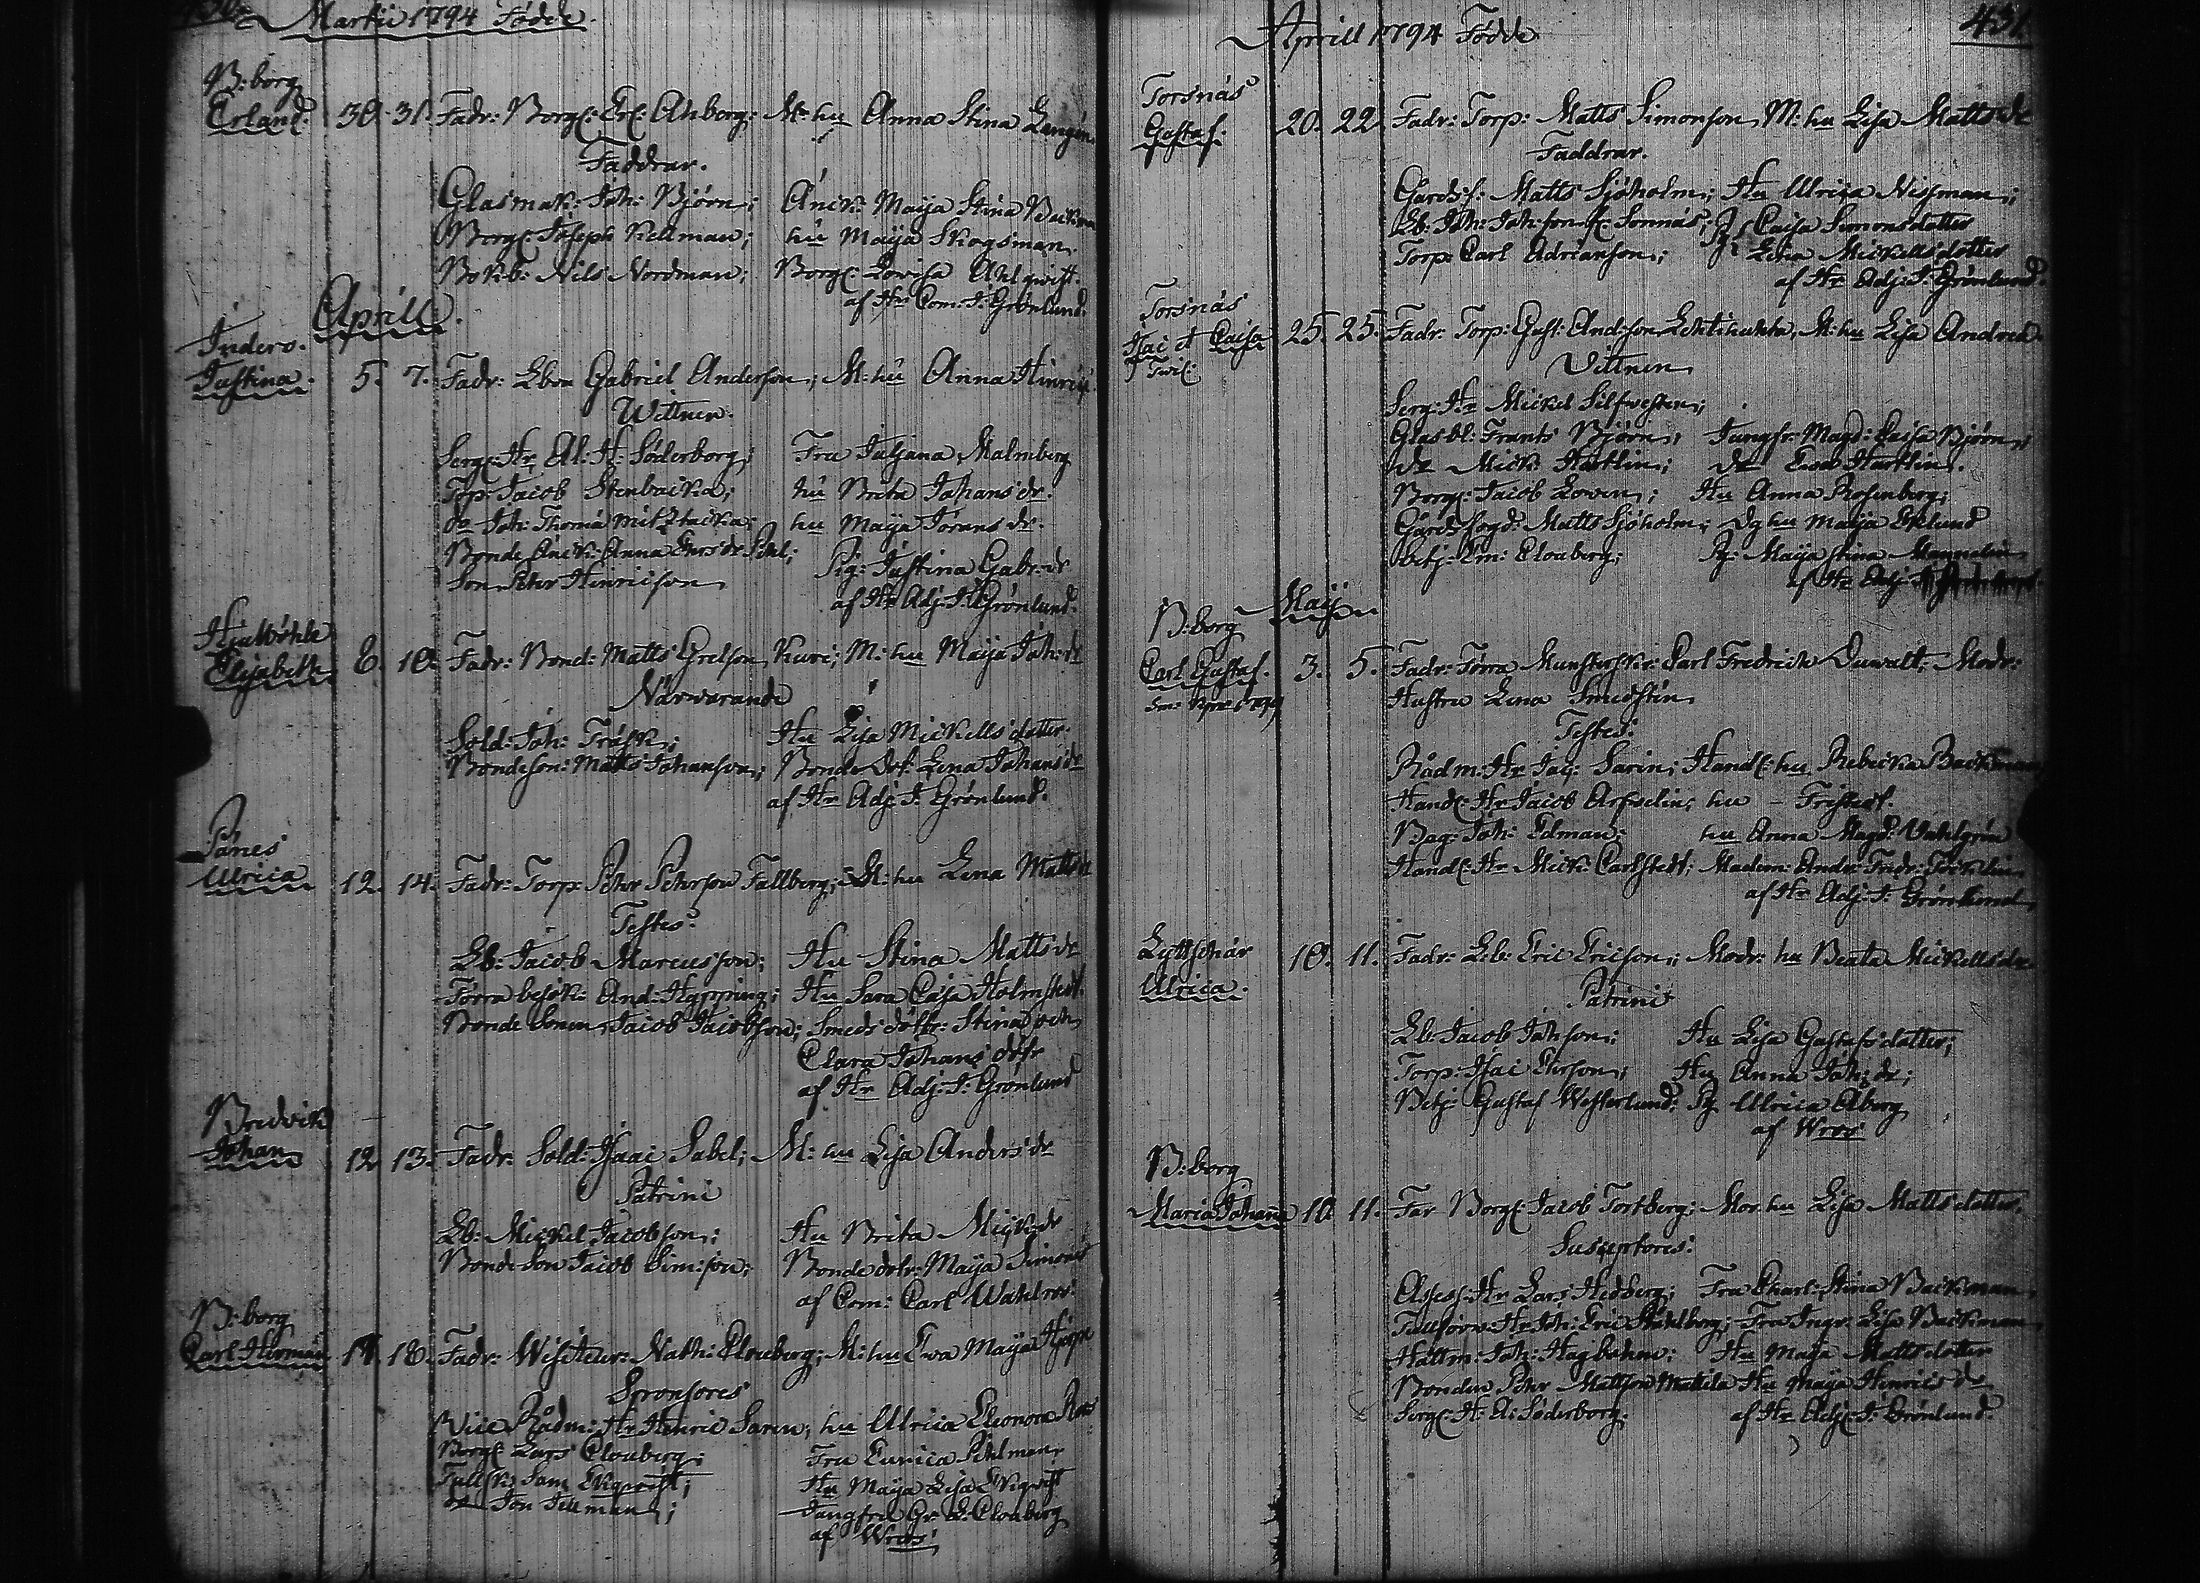 430. Martii 1794 Födde.
B:borg
Erland. 30. 31. Fadr: Borg: Er: Ahlborg: M: hu Anna Stina Langén
Faddrar.
Glasmak: Joh: Björn; Änck: Maija Stina Backman
Borg: Joseph Kellman; hu Maija Skogsman
Bokb: Nils Nordman; Borg: Lovisa Ahlqvist.
af Hr Com: J: Grönlund.
Aprill.
Inders.
Justina. 5. 7. Fadr: Lbon Gabriel Anderson; M: hu Anna Hinrics
Wittnen.
Serg: Hr Al: H: Söderborg; Fru Juljana Malmberg
Torp: Jacob Stenbacka; hu Brita Johans dr.
do Joh: Thomæ hu Maija Jörans dr.
Bonde Änck: Anna
Son Pehr Hinricson Pig: Justina Gabr: dr
af Hr Adj: J: Grönlund.
Elisabeth 8. 10. Fadr: Bond: Matts Grelson Kure; M: hu Maija Joh: dr
Närwarande
Sold: Joh: Träsk; Hu Lisa Mickells dotter.
Bondeson: Matts Johanson; Bonde Dot: Lena Johans dr
af Hr Adj: J: Grönlund.
Panes
Ulrica 12. 14. Fadr: Torp: Pehr Pehrson Fallberg; M: hu Lena Matts dr
Testes:
Lb: Jacob Marcusson; Hu Stina Matts dr
Förra besök: And: Hypping; Hu Sara Cajsa Holmstedt.
Bonde Sonen Jacob Jacobson; Smeds dottr: Stina och
Clara Johans dotr
af Hr Adj: J: Grönlund
Bredvik
Johan 12. 13. Fadr: Sold: Isaac Sabel; M: hu Lisa Anders dr
Patrini
Lb: Mickel Jacobson; Hu Brita Mick: dr
Bonde Son Jacob Sim:son; Bonde dotr: Maija Simons
af Com: Carl Wahlros.
B:borg
Carl Herman 17. 18. Fadr: Wisiteur: Nath: Clouberg; M: hu Eva Maija
Sponsores
Vice Rådm: Hr Henric Saren; hu Ulrica Eleonora
Borg: Lars Clouberg; Fru Eunica Pihlman
Tullsk: Sam Ekqwist; Hu Maija Lisa Ekqwist
do Jon Tellman; Jungfru Gr: L: Clouberg
af Wros
Aprill 1794 Födde 431.
Torsnäs
Gustaf. 20. 22. Fadr: Torp: Matts Simonson, M: hu Lisa Matts dr
Faddrar.
Gårdsf: Matts Sjöholm; Hu Ulrica Nisman;
Lb: Joh: Joh:son Sonnäs; Pg: Caisa Simonsdotter
Torp: Carl Adrianson; Pg: Lena Mickellsdotter
af Hr Adj: J: Grönlund.
Torsnäs
Isac et Caisa 25. 25. Fadr: Torp: Gust: And:son M: hu Lisa Andrea
Twil:
Vittnen
Serg: Hr Mickel Silfvesten;
Glasbl: Frants Björn; Jungfr: Magd: Caisa Björn;
do Mick: Hartlin; do Ewa Hartlin.
Borg: Jacob Lowen; Hu Anna Rosenberg;
Gårdsfogd: Matts Sjöholm; Dg hu Maija Eklund
Betj: Em: Clouberg; Pg: Maija Stina
af Hr Adj: J:
Maij
B:borg
Carl Gustaf. 3. 5. Fadr: Förra Munstersk: Carl Fredrich Duwalt; Modr:
Hustru Lena Smedstin
Testes:
Rådm: Hr Jag: Sarin; Handl: hu Rebecka Backman
Handl: Hr Jacob Arfvelin; hu - Fristedt.
Bag: Joh: Edman; hu Anna Magd: Wahlgrén
Handl: Hr Mick: Carlstedt; Madem: Andr: Fredr:
af Hr Adj: J: Grönlund
Lyttskär
Ulrica. 10. 11. Fadr: Lb: Eric Ericson; Modr: hu Beata Mickellsdr.
Patrini
Lb: Jacob Johson; Hu Lisa Gustafsdotter;
Torp: Isac Ehrson; Hu Anna Joh: dr;
Betj: Gustaf Westerlund; Pg Ulrica Åberg
af Wros
B:borg
Maria Johana 10. 11. Far Borg: Jacob Fortberg; Mor hu Lisa Mattsdotter.
Susceptores:
Assess: Hr Lars Hedberg; Fru Charl: Stina Backman
Tullförw: Hr Joh: Eric Ståhlberg; Fru Ingr: Lisa Backman
Hållm: Joh: Hu Maija Mattsdotter
Bonden Pehr Mattson Mattila Hu Maija Hinrics dr
Serg: H: A: Söderborg. af Hr Adj: J: Grönlund.